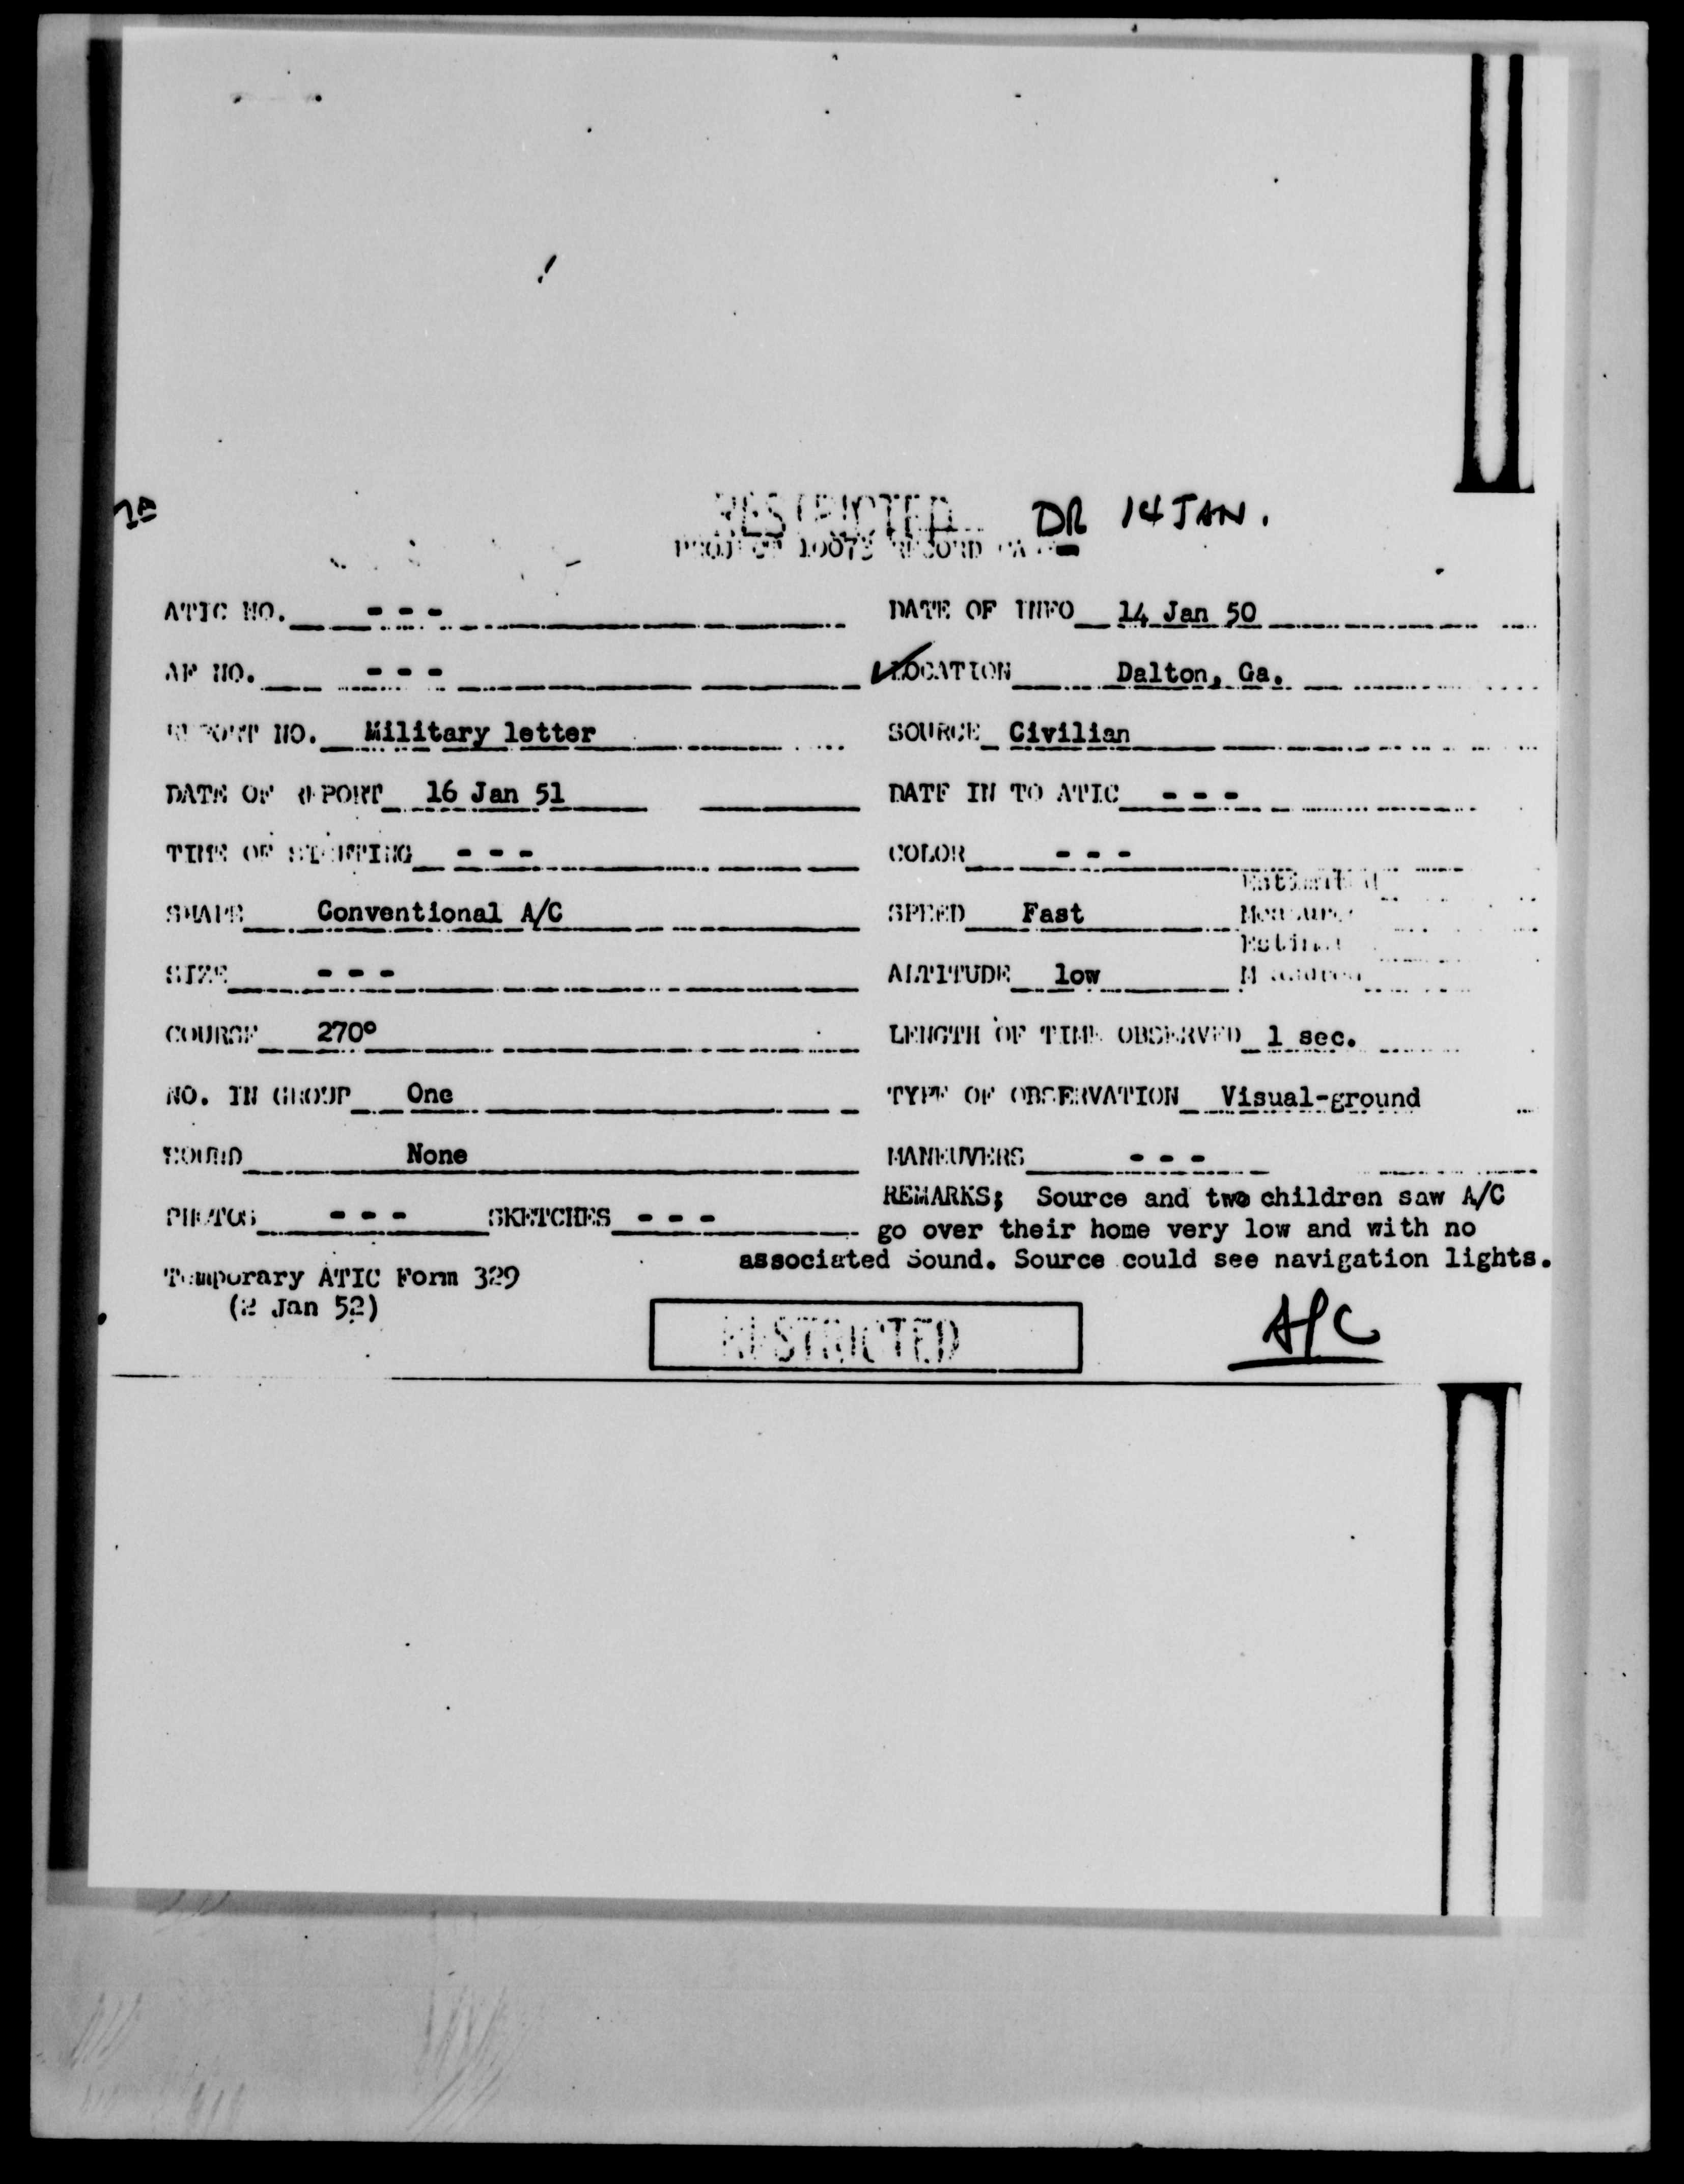 RESTRICTED DR 14 JAN.
PROJECT 10073 RECORD
ATIC NO. - - - DATE OF INFO 14 Jan 50
AF NO. - - - LOCATION Dalton, Ga.
REPORT NO. Military letter SOURCE Civilian
DATE OF REPORT 16 Jan 51 DATE IN TO ATIC - - -
TIME OF SIGHTING - - - COLOR - - -
Estimated
SHAPE Conventional A/C SPEED Fast Measured
Estimated
SIZE - - - ALTITUDE low Measured
COURSE 270° LENGTH OF TIME OBSERVED 1 sec.
NO. IN GROUP One TYPE OF OBSERVATION Visual-ground
SOUND None MANEUVERS - - -
REMARKS; Source and two children saw A/C
PHOTOS - - - SKETCHES - - - go over their home very low and with no
associated Sound. Source could see navigation lights.
Temporary ATIC Form 329
(2 Jan 52)
RESTRICTED A/C